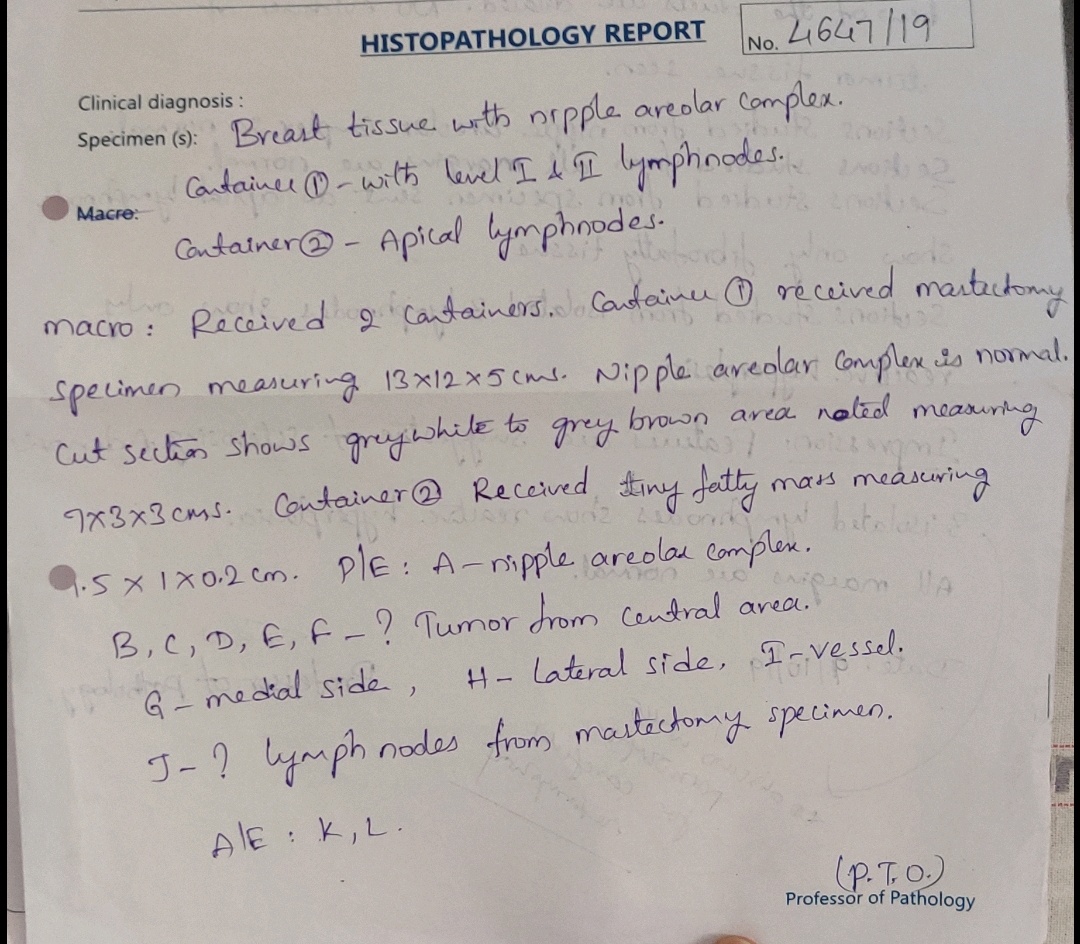 HISTOPATHOLOGY REPORT
No. 4647/19
Clinical diagnosis :
Specimen (s): Breast tissue with nipple areolar complex.
Container ① - with level I & II lymphnodes.
Macro:
Container ② - Apical lymphnodes.
macro : Received 2 containers. Container ① received mastectomy
specimen measuring 13x12x5 cms. Nipple areolar complex is normal.
Cut section shows greywhite to grey brown area noted measuring
7x3x3 cms. Container ② Received tiny fatty mass measuring
1.5 x 1 x 0.2 cm. P/E : A - nipple areolar complex.
B, C, D, E, F - ? Tumor from central area.
G - medial side, H - Lateral side, I - vessel.
J - ? lymph nodes from mastectomy specimen.
A/E : K, L.
(P.T.O.)
Professor of Pathology